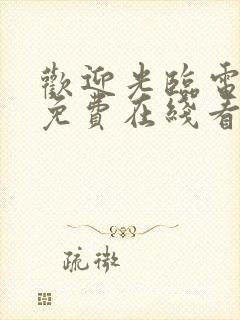 歡迎光臨電
免費在綫看
疏微